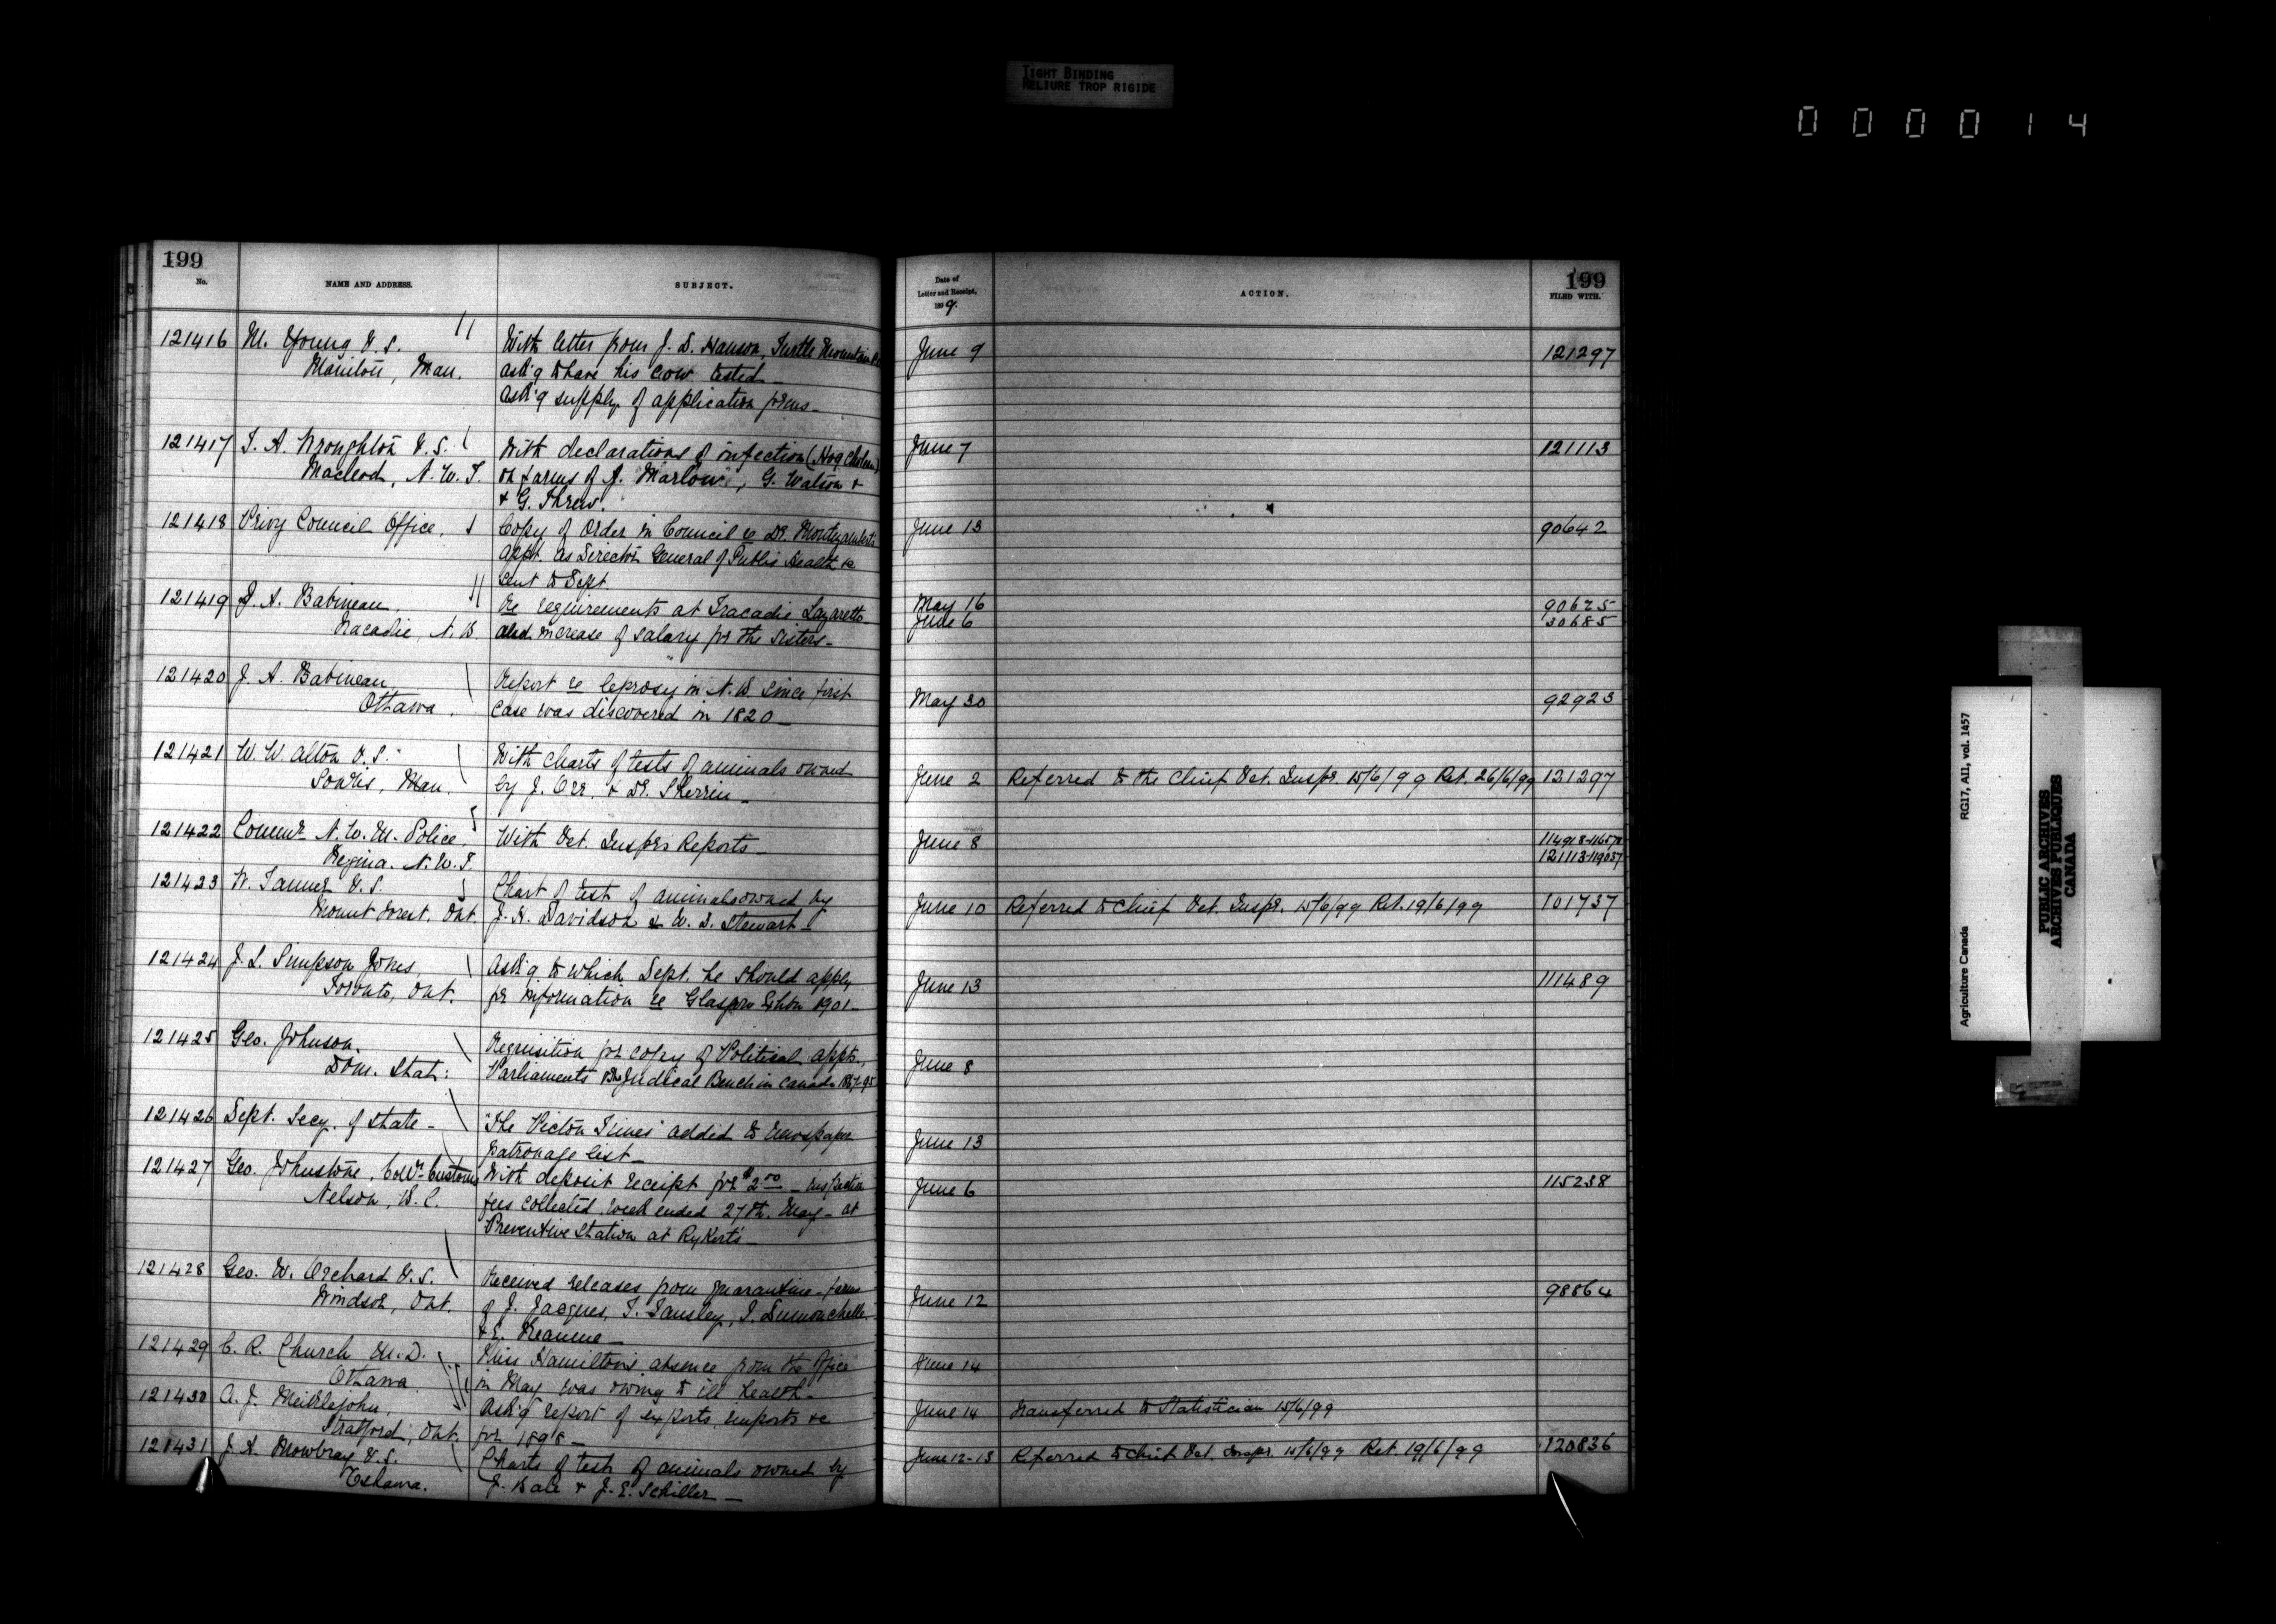 TIGHT BINDING
RELIURE TROP RIGIDE
000014
199
No.
NAME AND ADDRESS.
SUBJECT.
121416 M. Young V.S.
Manitou, Man.
With letter from J. D. Hanson, Turtle Mountain
ask'g to have his cow tested _
Ask'g supply of application forms _
121417 T. A. Wroughton V.S.
Macleod, N.W.T.
With declarations of infection (Hog Cholera)
on farms of J. Marlow, G. Watson &
& G. Threw.
121418 Privy Council Office,
Copy of Order in Council re Dr. Montizambert's
appt. as Director General of Public Health &c
sent to Dept.
121419 J. A. Babineau,
Tracadie, N.B.
Re requirements at Tracadie Lazaretto
and increase of salary for the Sisters _
121420 J. A. Babineau,
Ottawa.
Report re leprosy in N.B. since first
case was discovered in 1820 _
121421 W. W. Alton V.S.
Souris, Man.
With charts of tests of animals owned
by J. Orr, & Dr. Sherrin _
121422 Commr. N.W.M. Police,
Regina. N.W.T.
With Vet. Inspr's Reports _
121423 W. Tanner V.S.
Mount Forest, Ont.
Chart of test of animals owned by
J. H. Davidson & W. D. Stewart
121424 J. L. Simpson Jones,
Toronto, Ont.
Ask'g to which Dept. he should apply
for information re Glasgow Exhbn 1901 _
121425 Geo. Johnson,
Dom. Stat:
Requisition for copy of Political appts.,
Parliaments & the Judical Bench in Canada 1867-95
121426 Dept. Secy. of State _
"The Picton Times" added to newspaper
patronage list _
121427 Geo. Johnstone, Collr. Customs
Nelson, B.C.
With deposit receipt for $2.00 _ inspection
fees collected week ended 27th. May _ at
Preventive Station at Rykerts _
121428 Geo. W. Orchard V.S.
Windsor, Ont.
Received releases from quarantine _ farms
of J. Jacques, T. Tansley, I. Dumouchelle
& E. Reaume _
121429 C. R. Church M.D.
Ottawa
Miss Hamilton's absence from the Office
in May was owing to ill health _
121430 A. J. Meiklejohn,
Stratford, Ont.
Ask'g report of exports imports &c
for 1898 _
121431 J. A. Mowbray V.S.
Oshawa.
Charts of tests of animals owned by
J. Bale & J. E. Schiller _
Date of
Letter and Receipt,
1899.
ACTION.
199
FILED WITH.
June 9 121297
June 7 121113
June 13 90642
May 16 90625
June 6 30685
May 30 92923
June 2 Referred to the Chief Vet. Inspr. 15/6/99 Ret. 26/6/99 121297
June 8 114918-116578
121113-119037
June 10 Referred to Chief Vet. Inspr. 15/6/99 Ret. 19/6/99 101737
June 13 111489
June 8
June 13
June 6 115238
June 12 98864
June 14
June 14 Transferred to Statistician 15/6/99
June 12-13 Referred to Chief Vet. Inspr. 15/6/99 Ret. 19/6/99 120836
Agriculture Canada RG17, A11, vol. 1457
PUBLIC ARCHIVES
ARCHIVES PUBLIQUES
CANADA